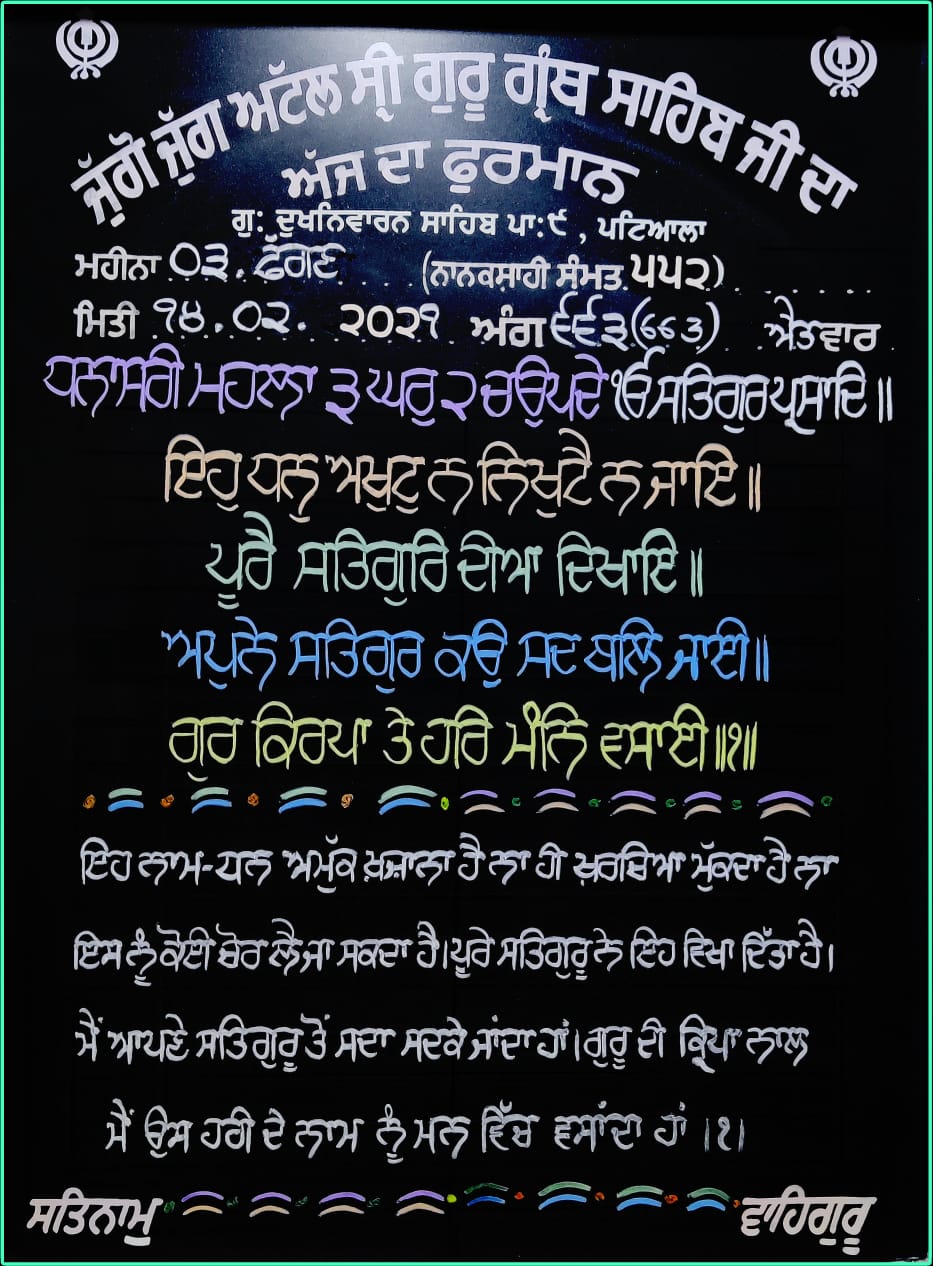 ਜੁੱਗੋ ਜੁੱਗ ਅਟੱਲ ਸ੍ਰੀ ਗੁਰੂ ਗ੍ਰੰਥ ਸਾਹਿਬ ਜੀ ਦਾ
ਅੱਜ ਦਾ ਫੁਰਮਾਨ
ਗੁ: ਦੁਖਨਿਵਾਰਨ ਸਾਹਿਬ ਪਾ:੯ , ਪਟਿਆਲਾ
ਮਹੀਨਾ ੦੩. ਫੱਗਣ (ਨਾਨਕਸ਼ਾਹੀ ਸੰਮਤ ੫੫੨)
ਮਿਤੀ ੧੪.੦੨. ੨੦੨੧ ਅੰਗ ੬੬੩(663) ਐਤਵਾਰ
ਧਨਾਸਰੀ ਮਹਲਾ ੩ ਘਰੁ ੨ ਚਉਪਦੇ ੴ ਸਤਿਗੁਰ ਪ੍ਰਸਾਦਿ॥
ਇਹੁ ਧਨੁ ਅਖੁਟੁ ਨ ਨਿਖੁਟੈ ਨ ਜਾਇ॥
ਪੂਰੈ ਸਤਿਗੁਰਿ ਦੀਆ ਦਿਖਾਇ॥
ਅਪੁਨੇ ਸਤਿਗੁਰ ਕਉ ਸਦ ਬਲਿ ਜਾਈ॥
ਗੁਰ ਕਿਰਪਾ ਤੇ ਹਰਿ ਮੰਨਿ ਵਸਾਈ॥੧॥
ਇਹ ਨਾਮ-ਧਨ ਅਮੁੱਕ ਖ਼ਜ਼ਾਨਾ ਹੈ ਨਾ ਹੀ ਖ਼ਰਚਿਆ ਮੁੱਕਦਾ ਹੈ ਨਾ
ਇਸ ਨੂੰ ਕੋਈ ਚੋਰ ਲੈ ਜਾ ਸਕਦਾ ਹੈ।ਪੂਰੇ ਸਤਿਗੁਰੂ ਨੇ ਇਹ ਵਿਖਾ ਦਿੱਤਾ ਹੈ।
ਮੈਂ ਆਪਣੇ ਸਤਿਗੁਰੂ ਤੋਂ ਸਦਾ ਸਦਕੇ ਜਾਂਦਾ ਹਾਂ।ਗੁਰੂ ਦੀ ਕ੍ਰਿਪਾ ਨਾਲ
ਮੈਂ ਉਸ ਹਰੀ ਦੇ ਨਾਮ ਨੂੰ ਮਨ ਵਿੱਚ ਵਸਾਂਦਾ ਹਾਂ ।੧।
ਸਤਿਨਾਮੁ ਵਾਹਿਗੁਰੂ